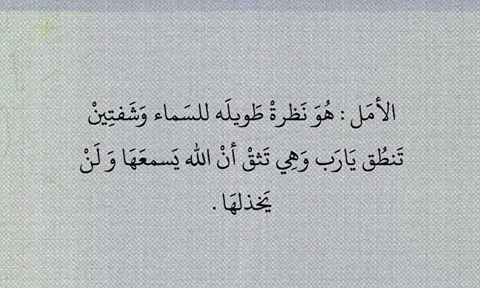 الأمَل : هُوَ نَظرةْ طَويلَه للسَماء وَشَفتِينْ
تَنطُق يَارَب وَهِي تَثقْ أنْ الله يَسمعَهَا وَ لَنْ
يَخذلهَا .